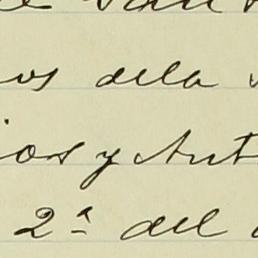 os dela
ios y Ant
2ª del